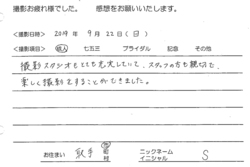 撮影お疲れ様でした。 感想をお願いいたします。
<撮影日時> 2019 年 9 月 22 日 (日)
<撮影項目> 成人 七五三 ブライダル 記念 その他
撮影スタジオもとても充実していて、スタッフの方も親切で、
楽しく撮影をすることができました。
お住まい 取手 市 ニックネーム イニシャル S